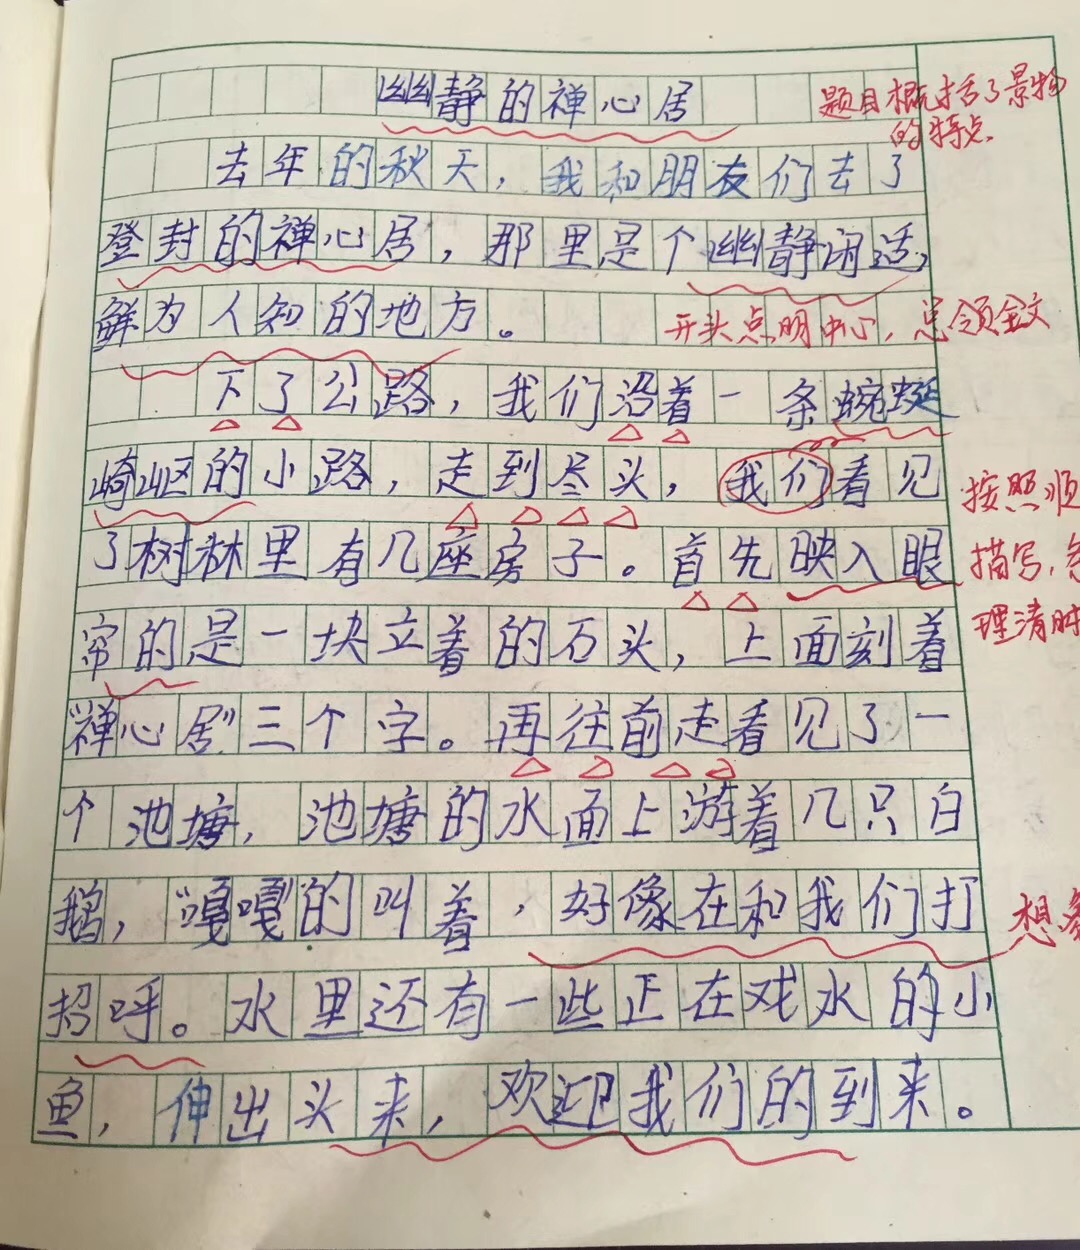 幽静的禅心居
题目概括了景物
的特点.
去年的秋天，我和朋友们去了
登封的禅心居，那里是个幽静闲适，
鲜为人知的地方。
开头点明中心，总领全文
下了公路，我们沿着一条蜿蜒
崎岖的小路，走到尽头，我们看见
了树林里有几座房子。首先映入眼
帘的是一块立着的石头，上面刻着
“禅心居”三个字。再往前走看见了一
个池塘，池塘的水面上游着几只白
鹅，“嘎嘎”的叫着，好像在和我们打
招呼。水里还有一些正在戏水的小
鱼，伸出头来，欢迎我们的到来。
按照顺
描写，条
理清晰
想象